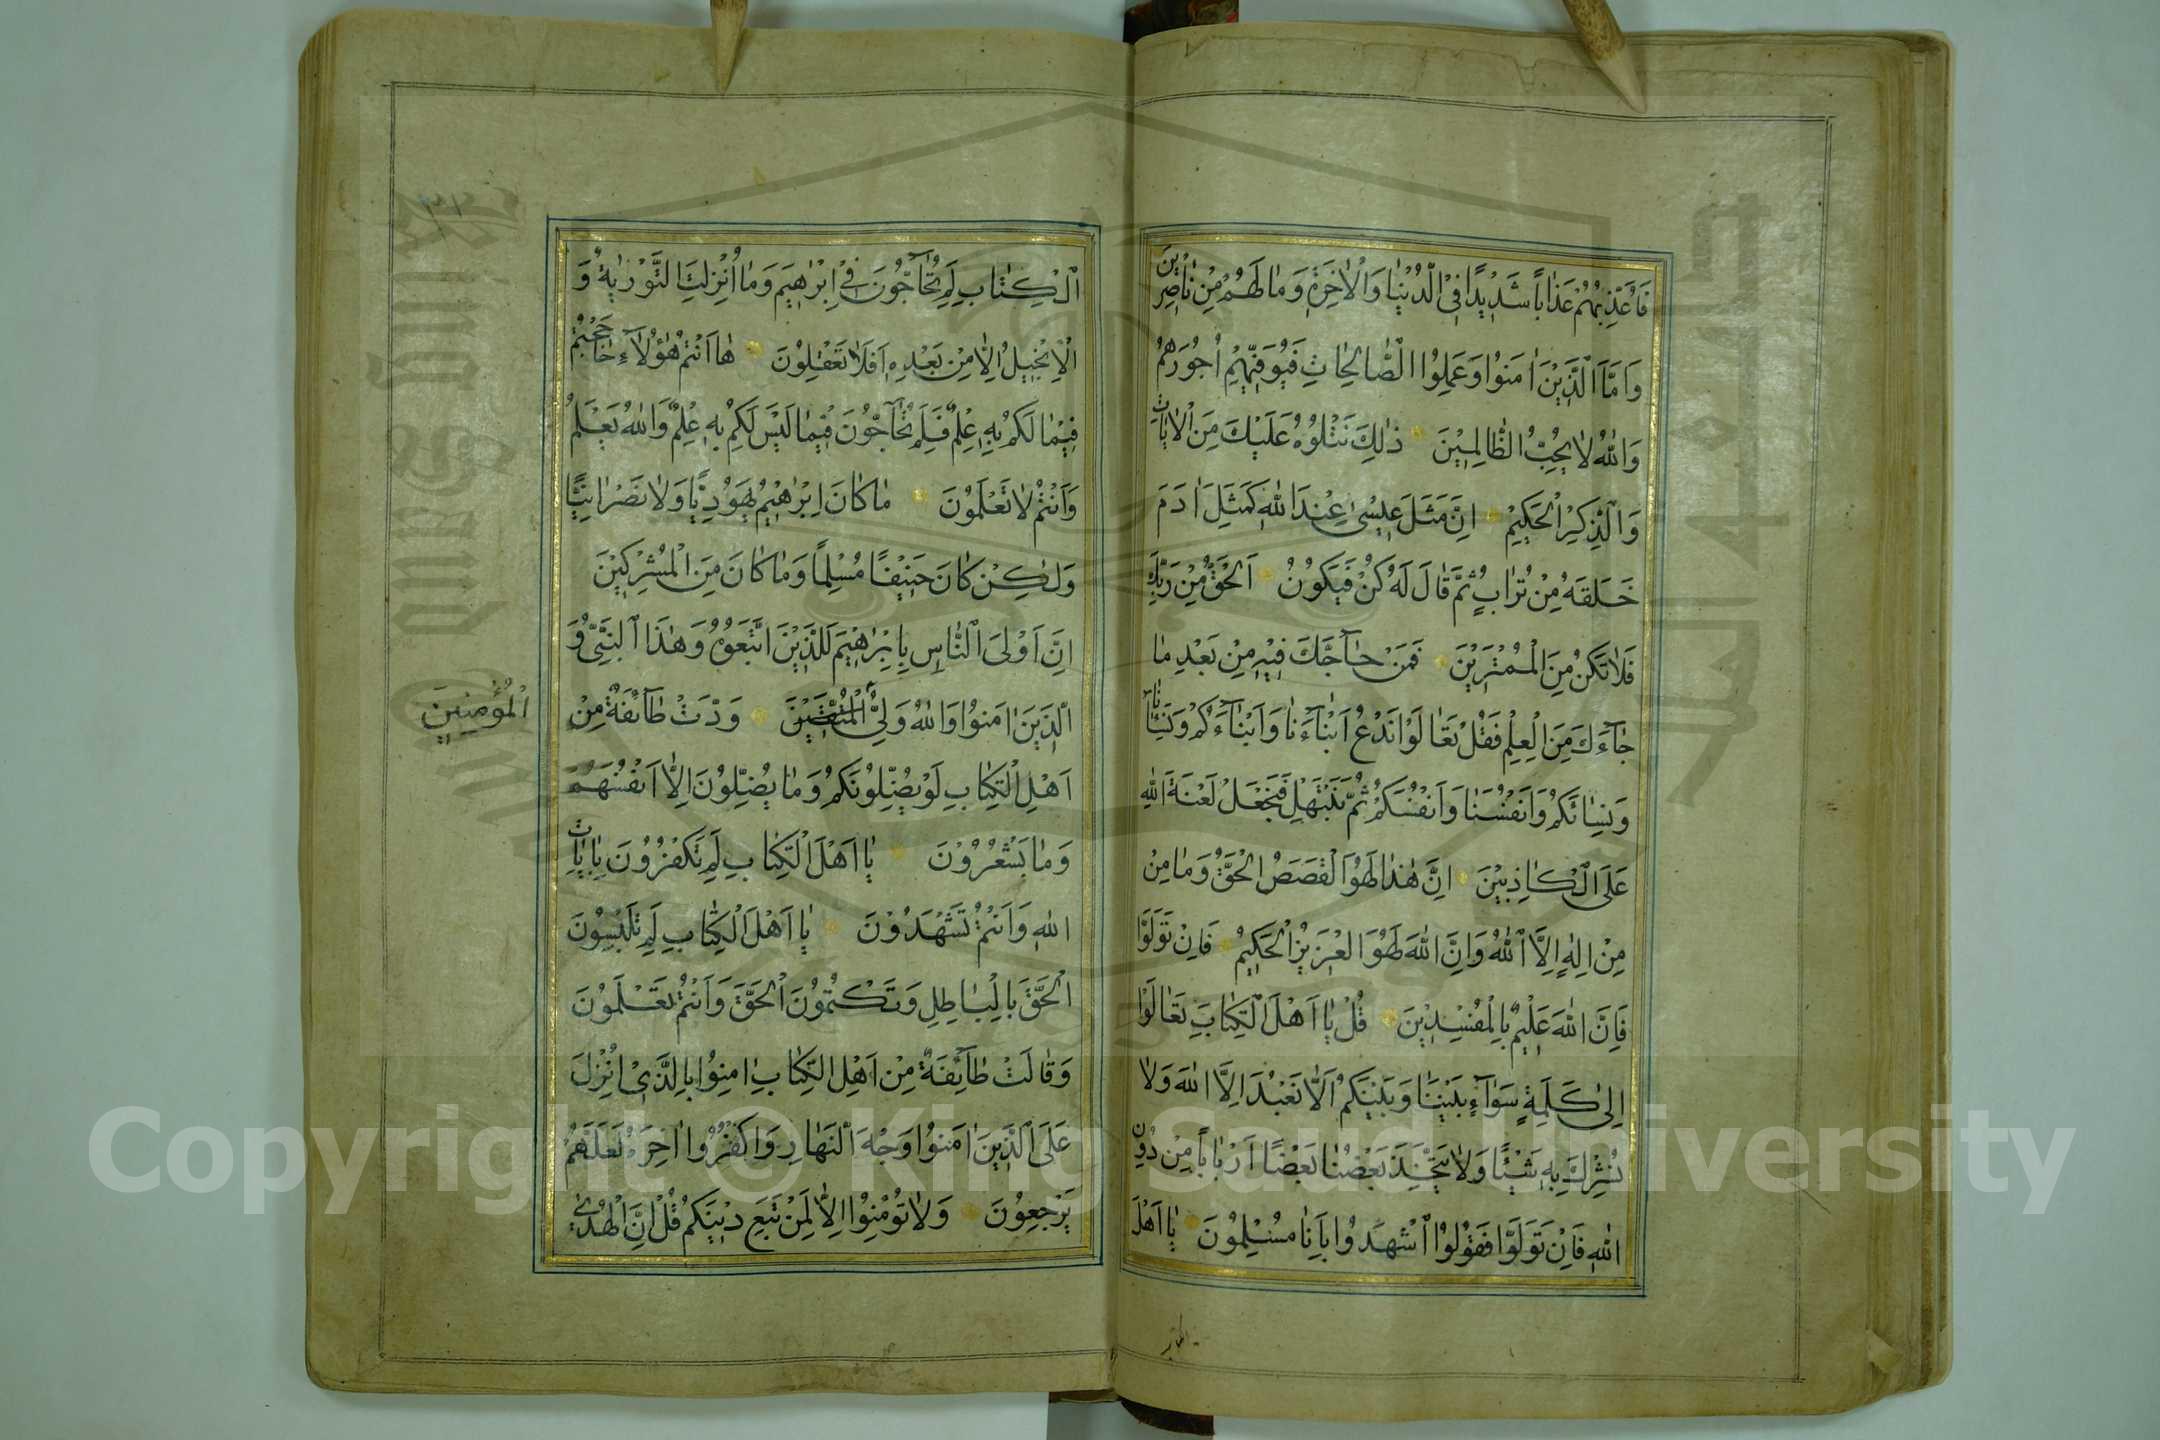 فَاُعَذِّبُهُمْ عَذَابًا شَدِيْدًا فِى الدُّنْيَا وَالْاٰخِرَةِ وَمَا لَهُمْ مِنْ نَاصِرِيْنَ
وَاَمَّا الَّذِيْنَ اٰمَنُوا وَعَمِلُوا الصَّالِحَاتِ فَيُوَفِّيْهِمْ اُجُورَهُمْ
وَاللّٰهُ لَا يُحِبُّ الظَّالِمِيْنَ ذٰلِكَ نَتْلُوْهُ عَلَيْكَ مِنَ الْاٰيَاتِ
وَالذِّكْرِ الْحَكِيْمِ اِنَّ مَثَلَ عِيْسٰى عِنْدَ اللّٰهِ كَمَثَلِ اٰدَمَ
خَلَقَهُ مِنْ تُرَابٍ ثُمَّ قَالَ لَهُ كُنْ فَيَكُوْنُ اَلْحَقُّ مِنْ رَبِّكَ
فَلَا تَكُنْ مِنَ الْمُمْتَرِيْنَ فَمَنْ حَآجَّكَ فِيْهِ مِنْ بَعْدِ مَا
جَآءَكَ مِنَ الْعِلْمِ فَقُلْ تَعَالَوْا نَدْعُ اَبْنَآءَنَا وَاَبْنَآءَكُمْ وَنِسَآءَنَا
وَنِسَائَكُمْ وَاَنْفُسَنَا وَاَنْفُسَكُمْ ثُمَّ نَبْتَهِلْ فَنَجْعَلْ لَعْنَةَ اللّٰهِ
عَلَى الْكَاذِبِيْنَ اِنَّ هٰذَا لَهُوَ الْقَصَصُ الْحَقُّ وَمَا مِنْ
مِنْ اِلٰهٍ اِلَّا اللّٰهُ وَاِنَّ اللّٰهَ لَهُوَ الْعَزِيْزُ الْحَكِيْمُ فَاِنْ تَوَلَّوْا
فَاِنَّ اللّٰهَ عَلِيْمٌ بِالْمُفْسِدِيْنَ قُلْ يَا اَهْلَ الْكِتَابِ تَعَالَوْا
اِلٰى كَلِمَةٍ سَوَآءٍ بَيْنَنَا وَبَيْنَكُمْ اَلَّا نَعْبُدَ اِلَّا اللّٰهَ وَلَا
نُشْرِكَ بِهِ شَيْئًا وَلَا يَتَّخِذَ بَعْضُنَا بَعْضًا اَرْبَابًا مِنْ دُوْنِ
اللّٰهِ فَاِنْ تَوَلَّوْا فَقُوْلُوا اشْهَدُوا بِاَنَّا مُسْلِمُوْنَ يَا اَهْلَ
الْكِتَابِ لِمَ تُحَآجُّوْنَ فِىْ اِبْرٰهِيْمَ وَمَا اُنْزِلَتِ التَّوْرٰيةُ وَ
الْاِنْجِيْلُ اِلَّا مِنْ بَعْدِهِ اَفَلَا تَعْقِلُوْنَ هَا اَنْتُمْ هٰؤُلَآءِ حَاجَجْتُمْ
فِيْمَا لَكُمْ بِهِ عِلْمٌ فَلِمَ تُحَآجُّوْنَ فِيْمَا لَيْسَ لَكُمْ بِهِ عِلْمٌ وَاللّٰهُ يَعْلَمُ
وَاَنْتُمْ لَا تَعْلَمُوْنَ مَا كَانَ اِبْرٰهِيْمُ يَهُوْدِيًّا وَلَا نَصْرَانِيًّا
وَلٰكِنْ كَانَ حَنِيْفًا مُسْلِمًا وَمَا كَانَ مِنَ الْمُشْرِكِيْنَ
اِنَّ اَوْلَى النَّاسِ بِاِبْرٰهِيْمَ لَلَّذِيْنَ اتَّبَعُوْهُ وَهٰذَا النَّبِىُّ وَ
الَّذِيْنَ اٰمَنُوا وَاللّٰهُ وَلِىُّ الْمُتَّقِيْنَ وَدَّتْ طَآئِفَةٌ مِنْ
الْمُؤْمِنِيْنَ
اَهْلِ الْكِتَابِ لَوْ يُضِلُّوْنَكُمْ وَمَا يُضِلُّوْنَ اِلَّا اَنْفُسَهُمْ
وَمَا يَشْعُرُوْنَ يَا اَهْلَ الْكِتَابِ لِمَ تَكْفُرُوْنَ بِاٰيَاتِ
اللّٰهِ وَاَنْتُمْ تَشْهَدُوْنَ يَا اَهْلَ الْكِتَابِ لِمَ تَلْبِسُوْنَ
الْحَقَّ بِالْبَاطِلِ وَتَكْتُمُوْنَ الْحَقَّ وَاَنْتُمْ تَعْلَمُوْنَ
وَقَالَتْ طَآئِفَةٌ مِنْ اَهْلِ الْكِتَابِ اٰمِنُوا بِالَّذِىْ اُنْزِلَ
عَلَى الَّذِيْنَ اٰمَنُوا وَجْهَ النَّهَارِ وَاكْفُرُوْا اٰخِرَهُ لَعَلَّهُمْ
يَرْجِعُوْنَ وَلَا تُؤْمِنُوا اِلَّا لِمَنْ تَبِعَ دِيْنَكُمْ قُلْ اِنَّ الْهُدٰى
Copyright © King Saud University